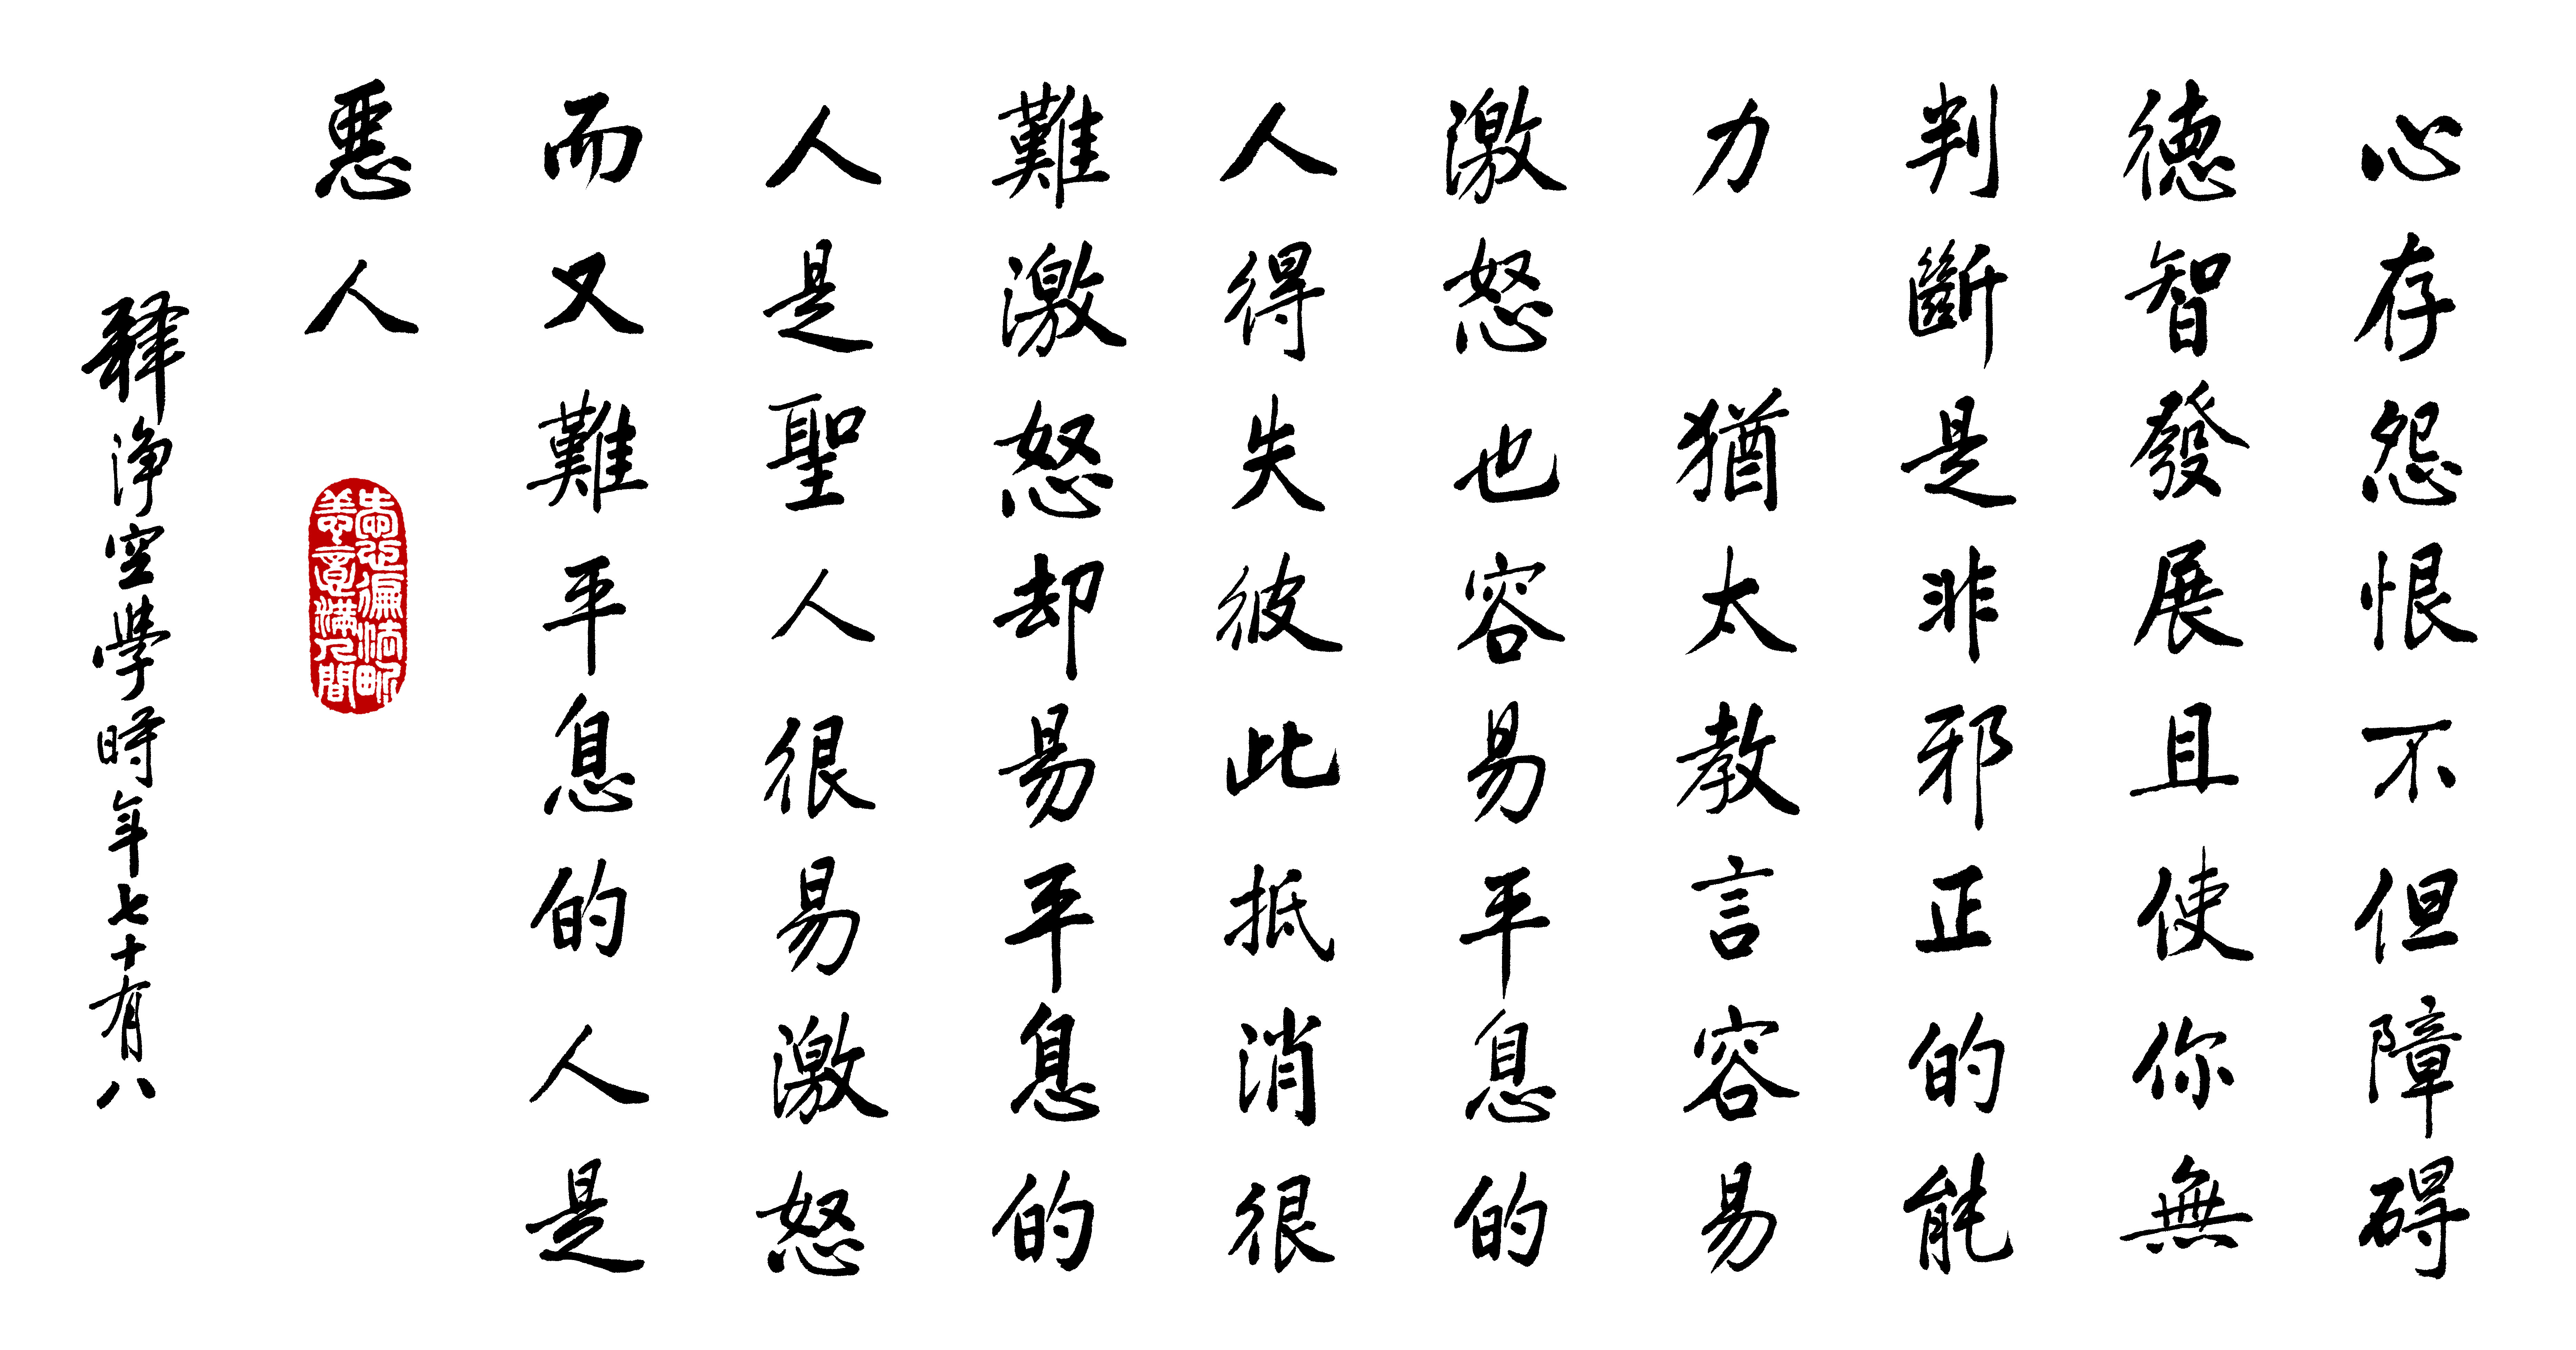 心存怨恨不但障碍
德智發展且使你無
判斷是非邪正的能
力 猶太教言容易
激怒也容易平息的
人得失彼此抵消很
難激怒却易平息的
人是聖人很易激怒
而又難平息的人是
惡人
釋淨空學時年七十有八